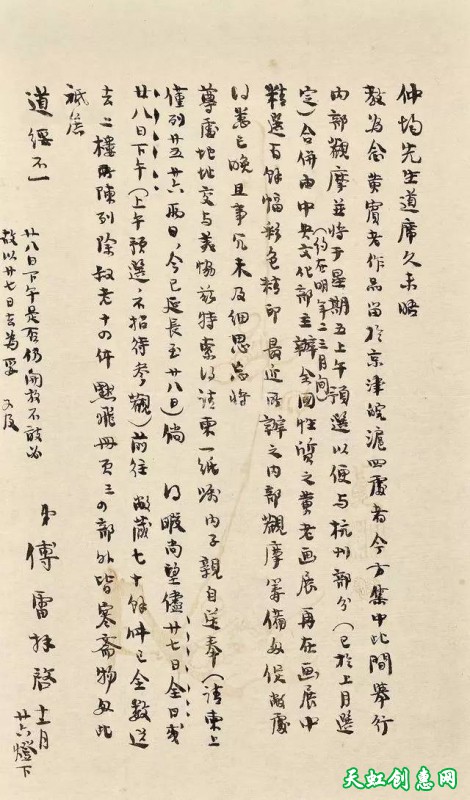 仲均先生道席久未晤
教為念黄賓老作品留於京津皖滬四處者今方集中此間舉行
內部觀摩並將于星期五上午預選以便與杭州部分(已於上月選
(約在明年二三月間)
定)合併由中央文化部主辦全國性質之黄老画展再在画展中
精選百餘幅彩色精印最近所辦之内部觀摩籌備匆促敝處
得悉已晚且事冗未及細思忘將
尊處地址交与美協茲特索得請柬一紙囑内子親自送奉(請柬上
僅列廿五廿六兩日,今已延長至廿八日)倘 得暇尚望儘廿七日全日或
廿八日下午(上午預選,不招待參觀)前往 敝藏七十餘件已全數送
去二樓所陳列除叔老十四件默飛冊頁三四部外皆寒齋物匆此
祗
道綏不一
廿八日下午是否仍開放不敢必
故以廿七日去為妥 又及
弟傅雷拜啓 十一月
廿六燈下
天虹创惠网